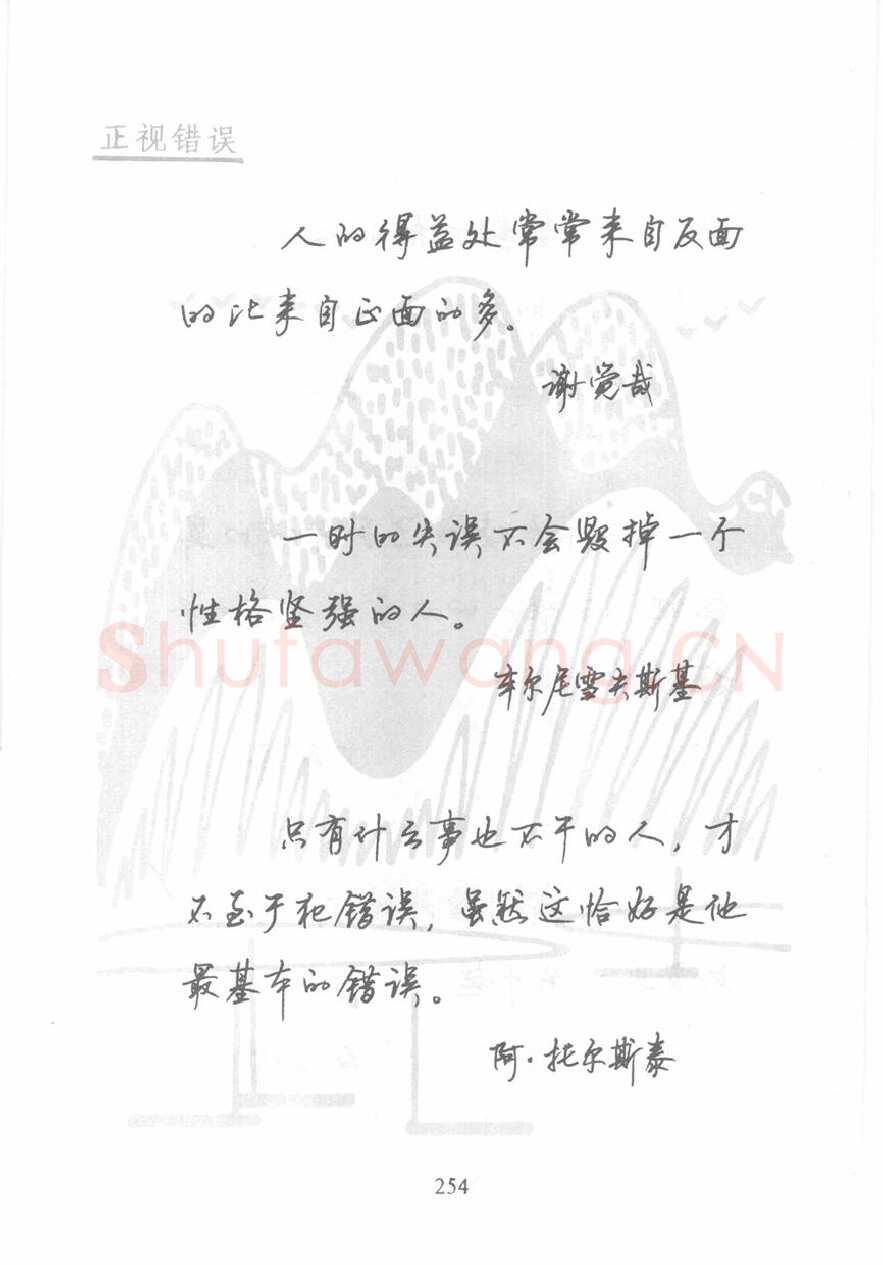 正视错误
人的得益处常常来自反面
的比来自正面的多。
谢觉哉
一时的失误不会毁掉一个
性格坚强的人。
车尔尼雪夫斯基
Shufawang.CN
只有什么事也不干的人，才
不至于犯错误，虽然这恰好是他
最基本的错误。
阿·托尔斯泰
254